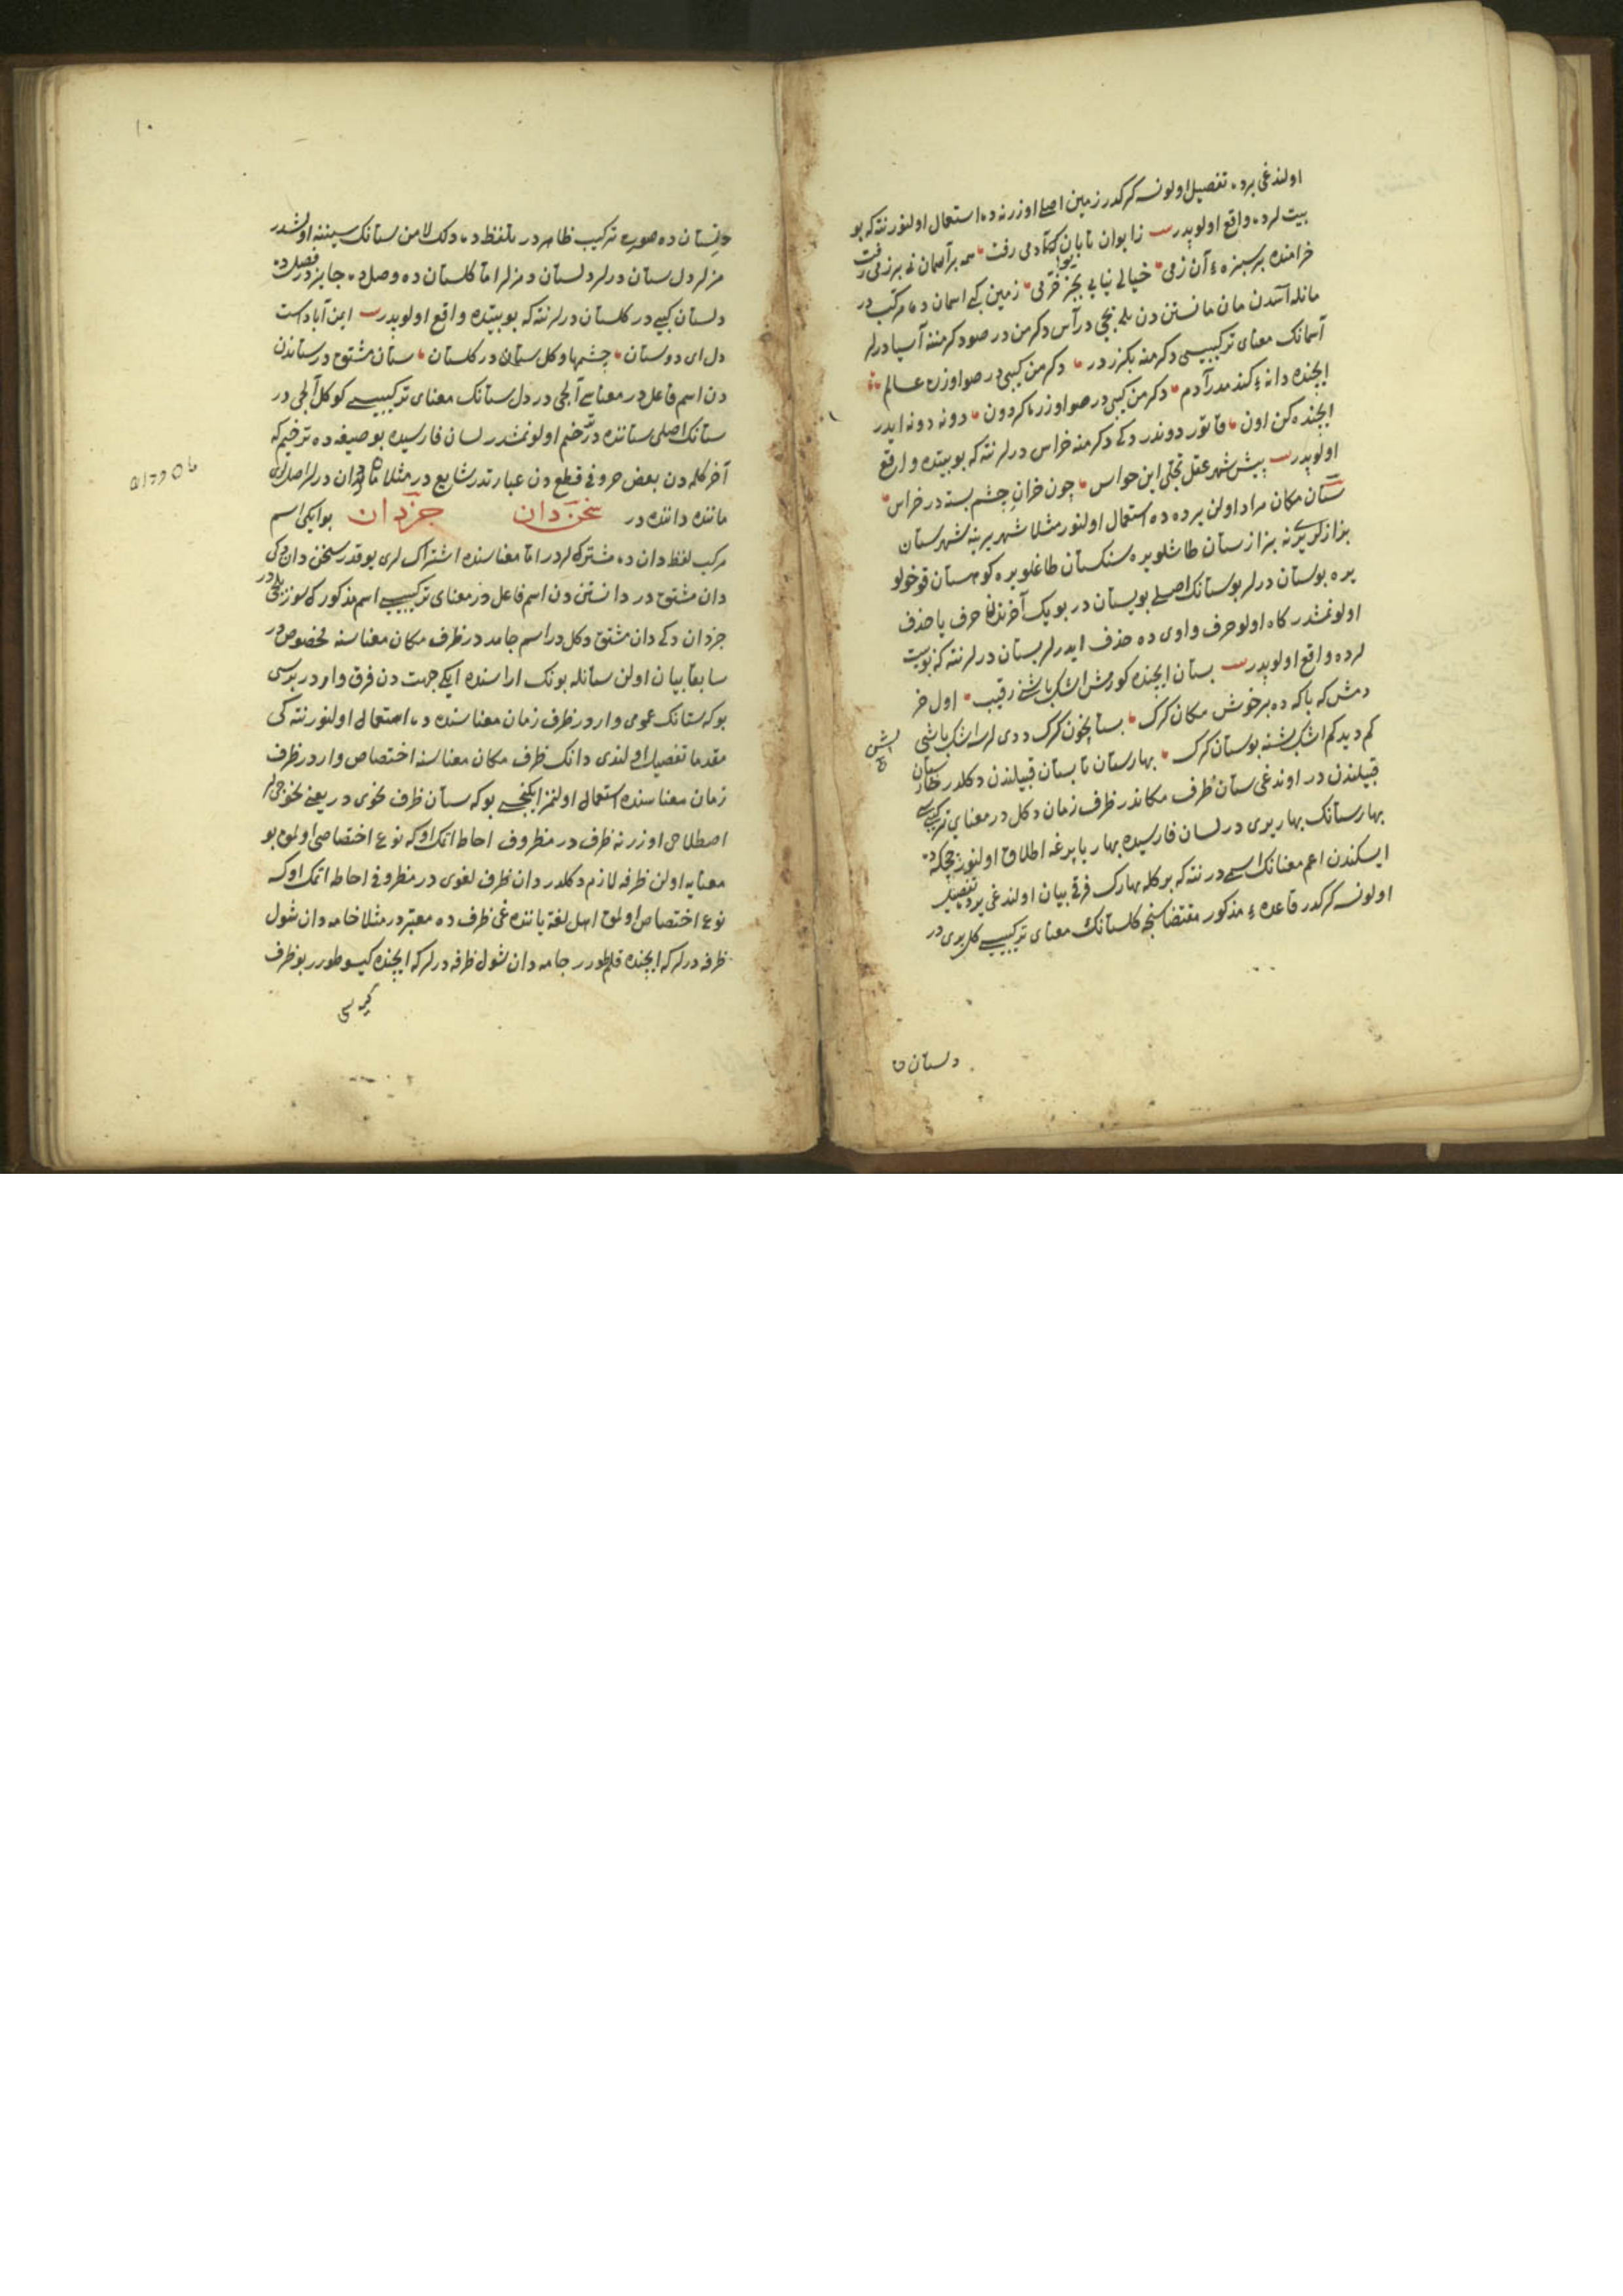 اولندغی یرده تفصیل اولونسه کرکدر زمین اصلی اوزرنه ده استعمال اولنور نته که بو
بیت لرده واقع اولوبدر بیت زا بوان تابان دمی رفت همه بر آسمان نه بر زمی رفت
خرامنده بر سبزه آن زمی خیالی نیابی بجز خرمی زمین کبی اسمان ده مرکب در
مانله آسدن مان مانستن دن در آس دکرمن در صو دکرمننه آسیا درلر
آسمانک معنای ترکیبیسی دکرمنه بکزر در دکرمن کبی در صو اوزره عالم
ایچنده دانه کندمدر آدم دکرمن کبی در صو اوزره کردون دونه دونه ایدر
ایچنده کن اون دوندر دکی دکرمنه خراس درلر نته که بو بیتده واقع
اولوبدر بیت پیش شهر عقل این حواس چون خران چشم بسته در خراس
ستان مکان مراد اولن یرده ده استعمال اولنور مثلا شهر یرینه شهرستان
بزازلر یرینه بزازستان طاشلو یره سنکستان طاغلو یره کوهستان قوخولو
یره بوستان درلر بوستانک اصلی بویستان در بویک آخرندن حرف یا حذف
اولونمشدر کاه اولو حرف واوی ده حذف ایدرلر بستان درلر نته که بو بیت
لرده واقع اولوبدر بیت بستان ایچنده کورمش اشک باشنی رقیب اول خر
دمش که باکه ده بر خوش مکان کرک بستانچون کرک ددی لرسه اشک باشی
کم دیدکم اشک بشنه بوستان کرک بهارستان تابستان قبیلندن دکلدر
قبیلندن در اوندغی ستان ظرف مکاندر ظرف زمان دکل در معنای ترکیبیسی
بهارستانک بهار یری در لسان فارسیده بهار یا پرغه اطلاق اولنور چچکه ده
ایسکندن اعم معنانک اسمی در نته که بر کله بهارک فرقی بیان اولندغی یرده تفصیل
اولونسه کرکدر قاعده مذکور مقتضاسنجه کلستانک معنای ترکیبیسی کل یری در
دلستان ده
۱۰
دلستان ده صوره ترکیب ظاهر در تلفظ ده دلک لامن ستانک سیننه اولشدر
مزلر دل ستان درلر دلستان دمزلر اما کلستان ده وصل ده جایزدر فصل ده
دلستان کبی در کلستان درلر نته که بو بیتده واقع اولوبدر بیت این آبادست
دل ای دوستان چشمها و کل ستان در کلستان ستان مشتق در ستاندن
دن اسم فاعل در معناسی آلجی در دل ستانک معنای ترکیبیسی کوکل آلجی در
ستانک اصلی ستاننده در ترخیم اولونمشدر لسان فارسیده بو صیغه ده ترخیم که
آخر کلمه دن بعض حروفی قطع دن عبارتدر شایع در مثلا مان دان درلر اصل لری
ماننده داننده در سخن دان جزدان بو ایکی اسم
مرکب لفظ دان ده مشترک لردر اما معناسنده اشتراک لری یوقدر سخن دان دکی
دان مشتق در دانستن دن اسم فاعل در معنای ترکیبیسی اسم مذکورک سوز بلجی در
جزدان دکی دان مشتق دکل در اسم جامد در ظرف مکان معناسنه مخصوص در
سابقا بیان اولن ستانله بونک اراسنده ایکی جهت دن فرق وار در بریسی
بو که ستانک عمومی وار در ظرف زمان معناسنده ده استعمال اولنور نته کی
مقدما تفصیل اولندی دانک ظرف مکان معناسنه اختصاص وار در ظرف
زمان معناسنده استعمال اولنمز ایکنجی بو که ستان ظرف نحوی در یعنی نحوی لر
اصطلاحی اوزرنه ظرف در مظروف احاطه اتمک او که نوع اختصاصی اولمق بو
معنایه اولن ظرفه لازم دکلدر دان ظرف لغوی در مظروفی احاطه اتمک او که
نوع اختصاص اولمق اهل لغة یاننده غی ظرف ده معتبردر مثلا خامه دان شول
ظرفه درلر که ایچنده قلم طورر جامه دان شول ظرفه درلر که ایچنده کیسو طورر بو ظرف